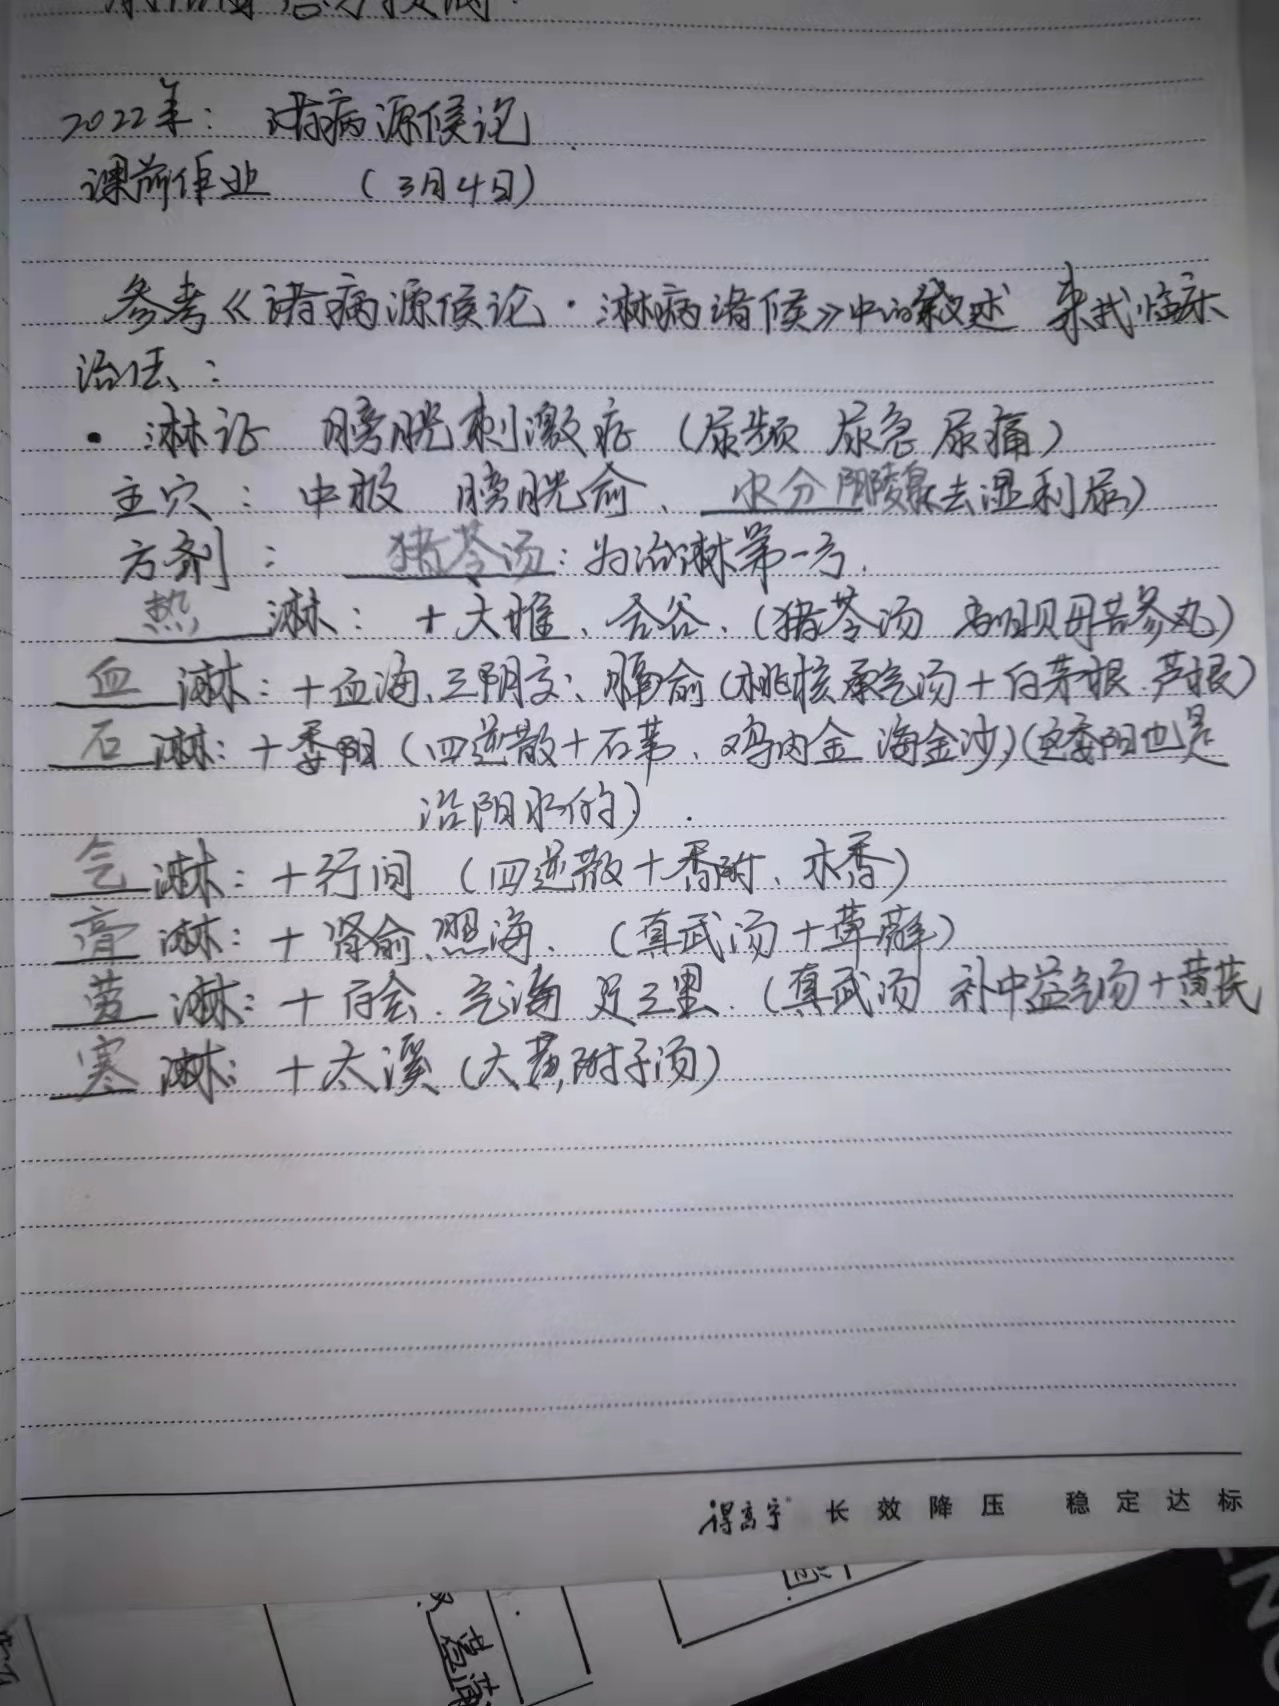 2022年：诸病源候论
课前作业 （3月4日）
参考《诸病源候论·淋病诸候》中的叙述 来找临床
治法：
· 淋证 膀胱刺激症（尿频 尿急 尿痛）
主穴：中极 膀胱俞、水分 阴陵泉（去湿利尿）
方剂：猪苓汤：为治淋第一方.
热淋：+大椎、合谷、（猪苓汤 当归贝母苦参丸）
血淋：+血海、三阴交、膈俞（桃核承气汤+白茅根、芦根）
石淋：+委阳（四逆散+石苇、鸡内金 海金沙）（委阳也是
治阴水的）.
气淋：+行间（四逆散+香附、木香）
膏淋：+肾俞、照海、（真武汤+萆薢）
劳淋：+百会、气海 足三里.（真武汤 补中益气汤+黄芪
寒淋：+太溪（大黄附子汤）
得高宁 长效降压 稳定达标